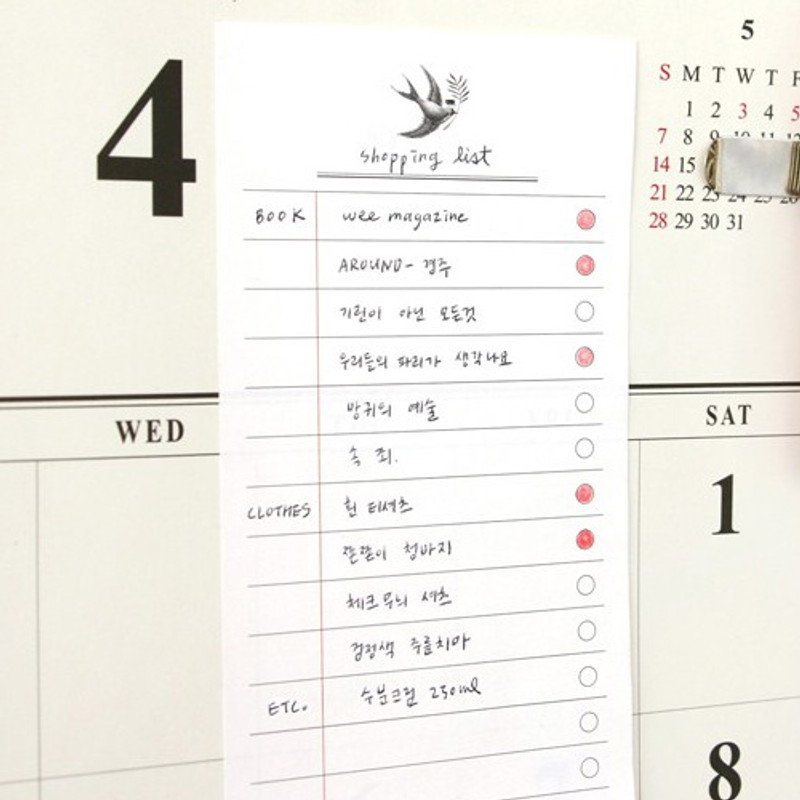 4
5
S M T W T F
1 2 3 4 5
7 8 9 10 11 12
14 15
21 22 23 24 25 26
28 29 30 31
shopping list
BOOK wee magazine
AROUND - 경주
기린이 아닌 모든것
우리들의 파리가 생각나요
방귀의 예술
속죄.
WED
SAT
CLOTHES 흰 티셔츠
1
쫄쫄이 청바지
체크무늬 셔츠
검정색 주름치마
ETC. 수분크림 250ml
8